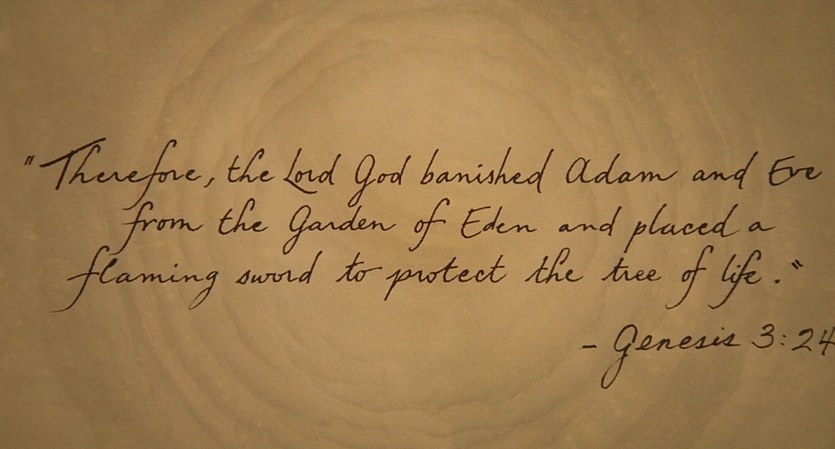 "Therefore, the Lord God banished Adam and Eve
from the Garden of Eden and placed a
flaming sword to protect the tree of life."
- Genesis 3:24